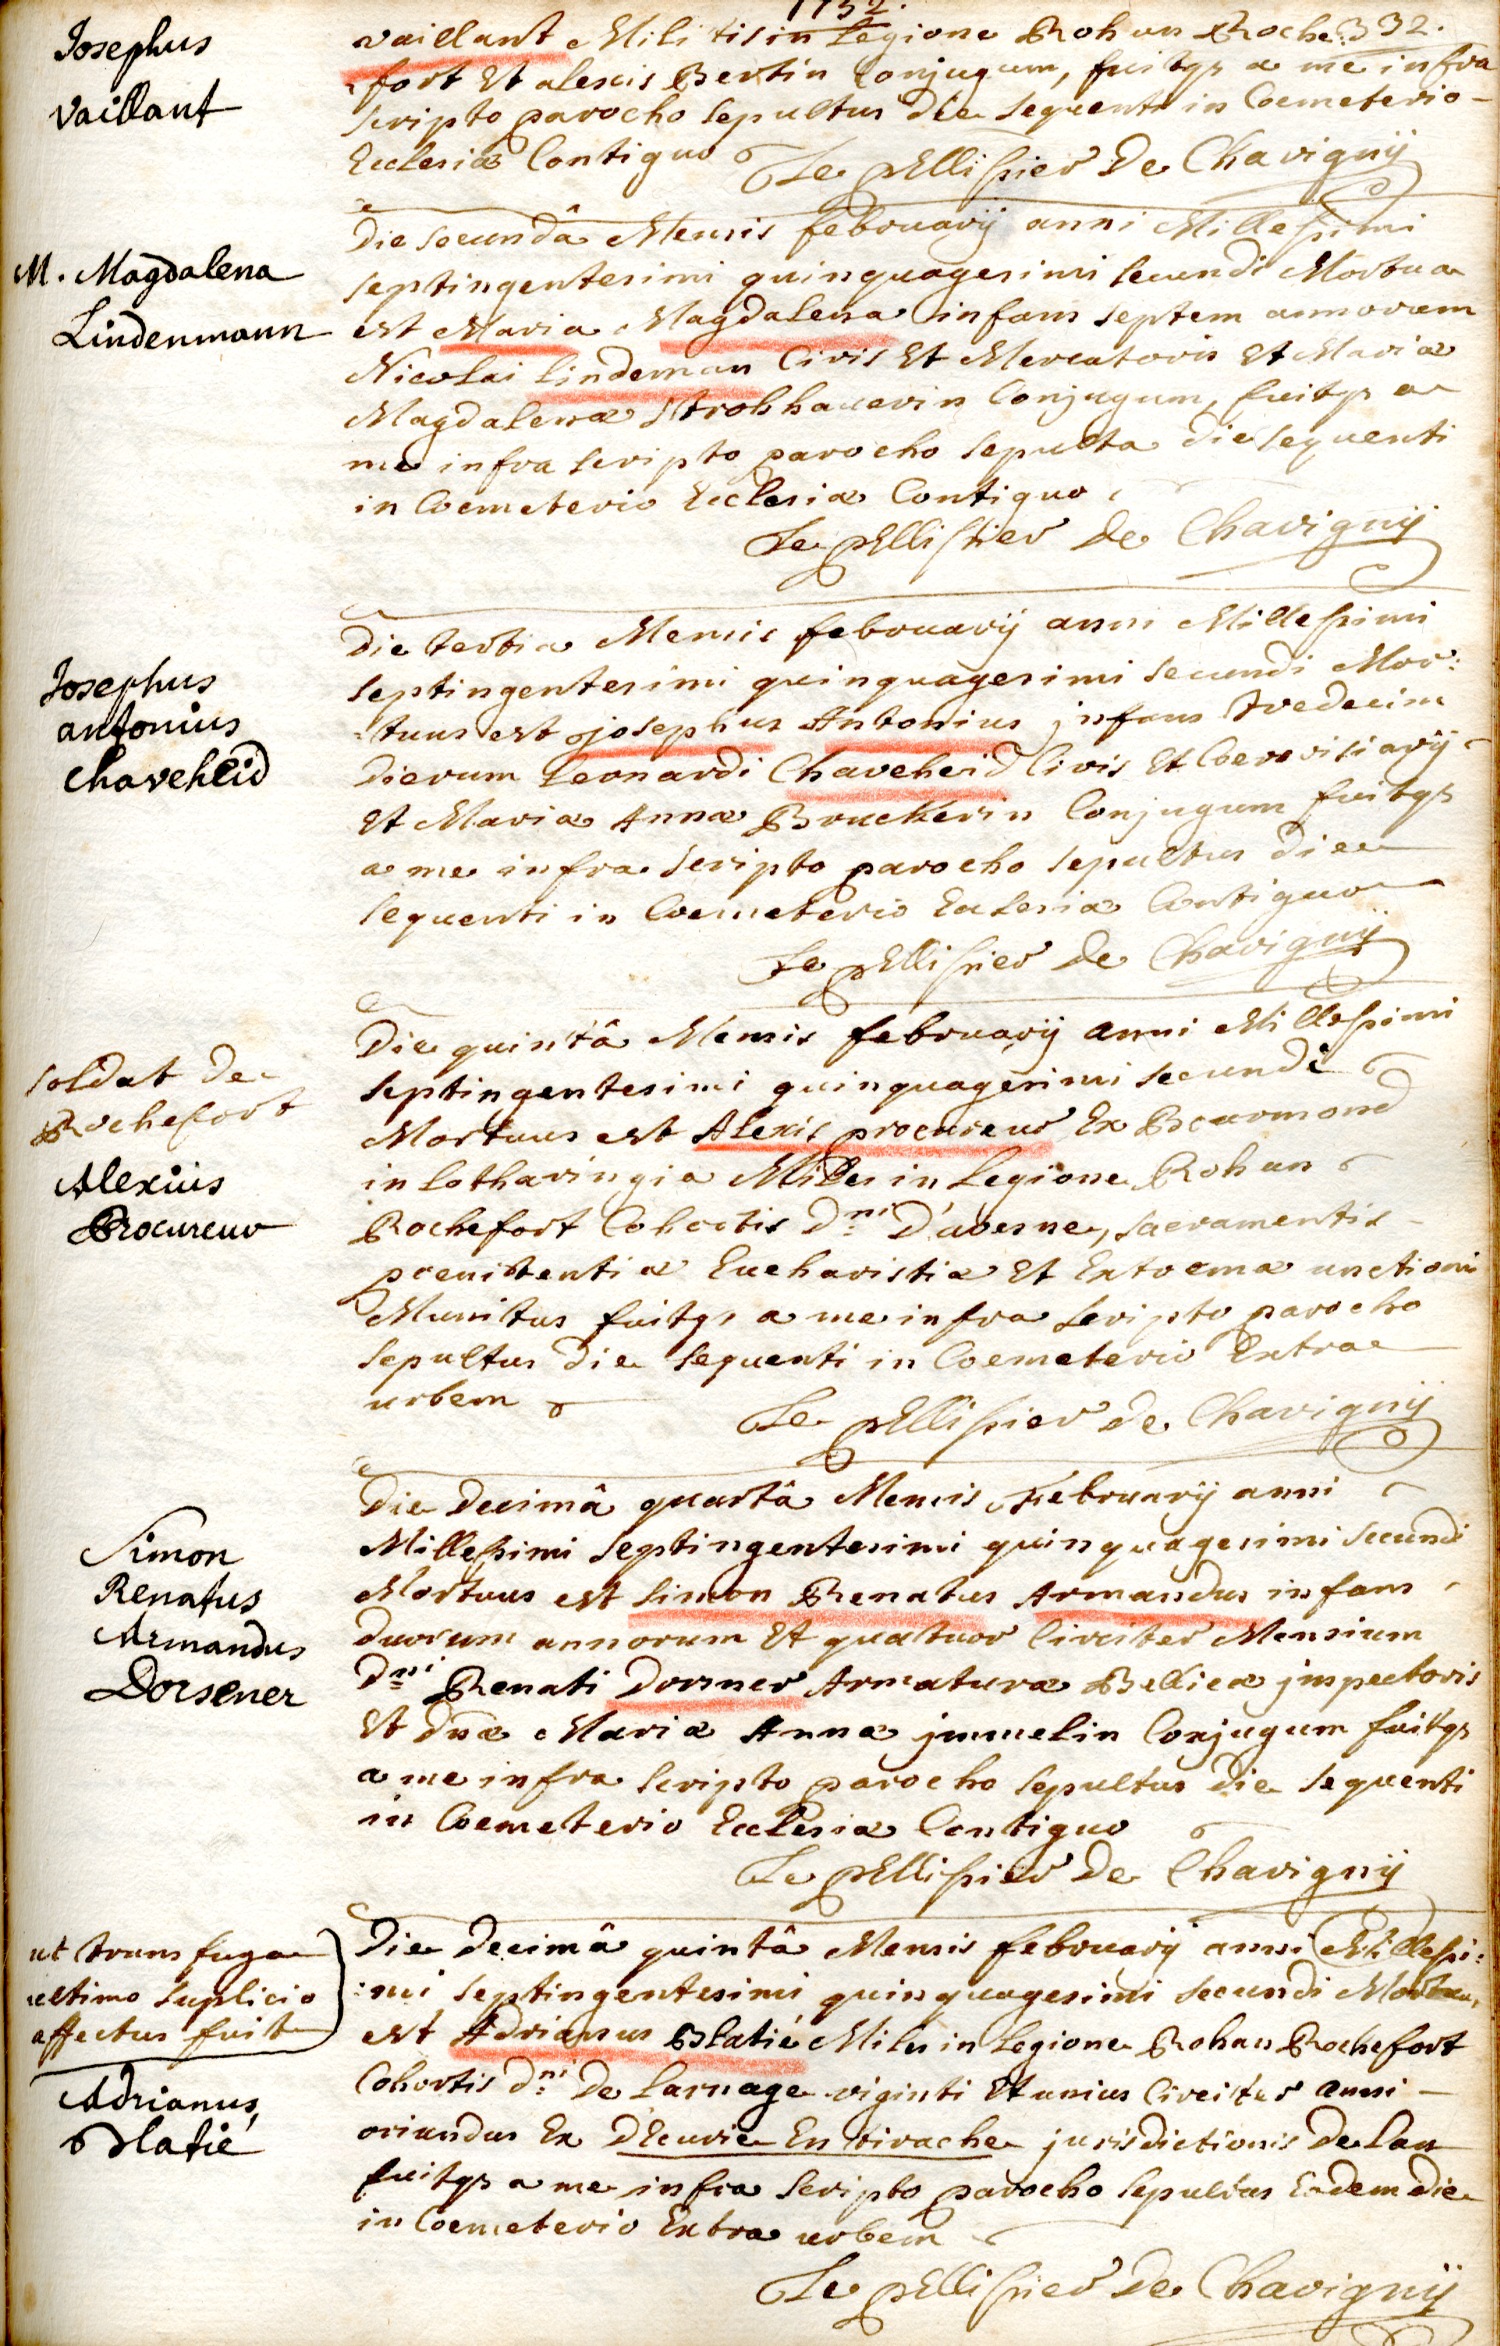 1752.
332.
Josephus
Vaillant
vaillant Militis in Legione Rohan Roche
fort Et alexis Bertin Conjugum, fuitqs a me infra
scripto parocho sepultus die sequenti in Coemeterio
Ecclesiæ Contiguo
Le pEllissier De Chavignÿ
M. Magdalena
Lindenmann
Die secundâ Mensis februarÿ anni Millessimi
septingentesimi quinquagesimi secundi Mortua
est Maria Magdalena infans septem annorum
Nicolai Lindeman Civis Et Mercatoris Et Mariæ
Magdalenæ Strobhauerin Conjugum, fuitqs a
me infra scripto parocho sepulta die sequenti
in Coemeterio Ecclesiæ Contiguo
Le pEllissier De Chavignÿ
Josephus
antonius
Chaveheid
Die tertia Mensis februarÿ anni Millessimi
septingentesimi quinquagesimi secundi Mor:
:tuus est josephus Antonius jnfans tredecim
Dierum Leonardi Chaveheid Civis Et Cerevisiarÿ
Et Mariæ Annæ Bruckerin Conjugum fuitqs
a me infra scripto parocho sepultus die
sequenti in Coemeterio Ecclesiæ Contiguo
Le pEllissier De Chavignÿ
soldat de
Rochefort
Alexius
Procureur
Die quintâ Mensis februarÿ anni Millessimi
septingentesimi quinquagesimi secundi
Mortuus est Alexis procureur Ex Bourmond
in Lotharingia Miles in Legione Rohan
Rochefort Cohortis Dni D'avesne, sacramentis
poenitentiæ Eucharistiæ Et Extremæ unctionis
Munitus fuitqs a me infra scripto parocho
sepultus die sequenti in Coemeterio Extra
urbem
Le pEllissier De Chavignÿ
Simon
Renatus
Armandus
Dorsener
Die Decimâ quartâ Mensis Februarÿ anni
Millessimi septingentesimi quinquagesimi secundi
Mortuus est simon Renatus Armandus infans
duorum annorum Et quatuor Circiter Mensium
Dni Renati Dorsner Armaturæ Bellicæ jnspectoris
Et dnæ Mariæ Annæ jmmelin Conjugum fuitqs
a me infra scripto parocho sepultus die sequenti
in Coemeterio Ecclesiæ Contiguo
Le pEllissier De Chavignÿ
ut transfuga
ultimo suplicio
affectus fuit
Adrianus
Blatié
Die Decimâ quintâ Mensis februarÿ anni Millessi:
:mi septingentesimi quinquagesimi secundi Mortuus
est Adrianus Blatié Miles in Legione Rohan Rochefort
Cohortis Dni De Larnage viginti Et unius Circiter anni
oriundus Ex D'Ecurie En tirache jurisdictionis De Lan
fuitqs a me infra scripto parocho sepultus Eadem die
in Coemeterio Extra urbem
Le pEllissier De Chavignÿ